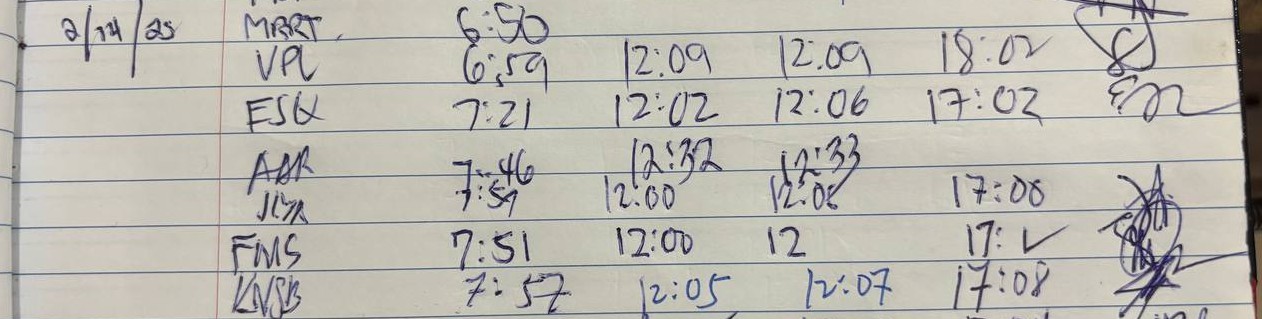 2/14/25 MRRT. 6:50
VPL 6:59 12:09 12:09 18:02
ESQ 7:21 12:02 12:06 17:02
AAR 7:46 12:32 12:33
7:59 12:00 17:00
FMS 7:51 12:00 12 17:
KNSB 7:57 12:05 12:07 17:08